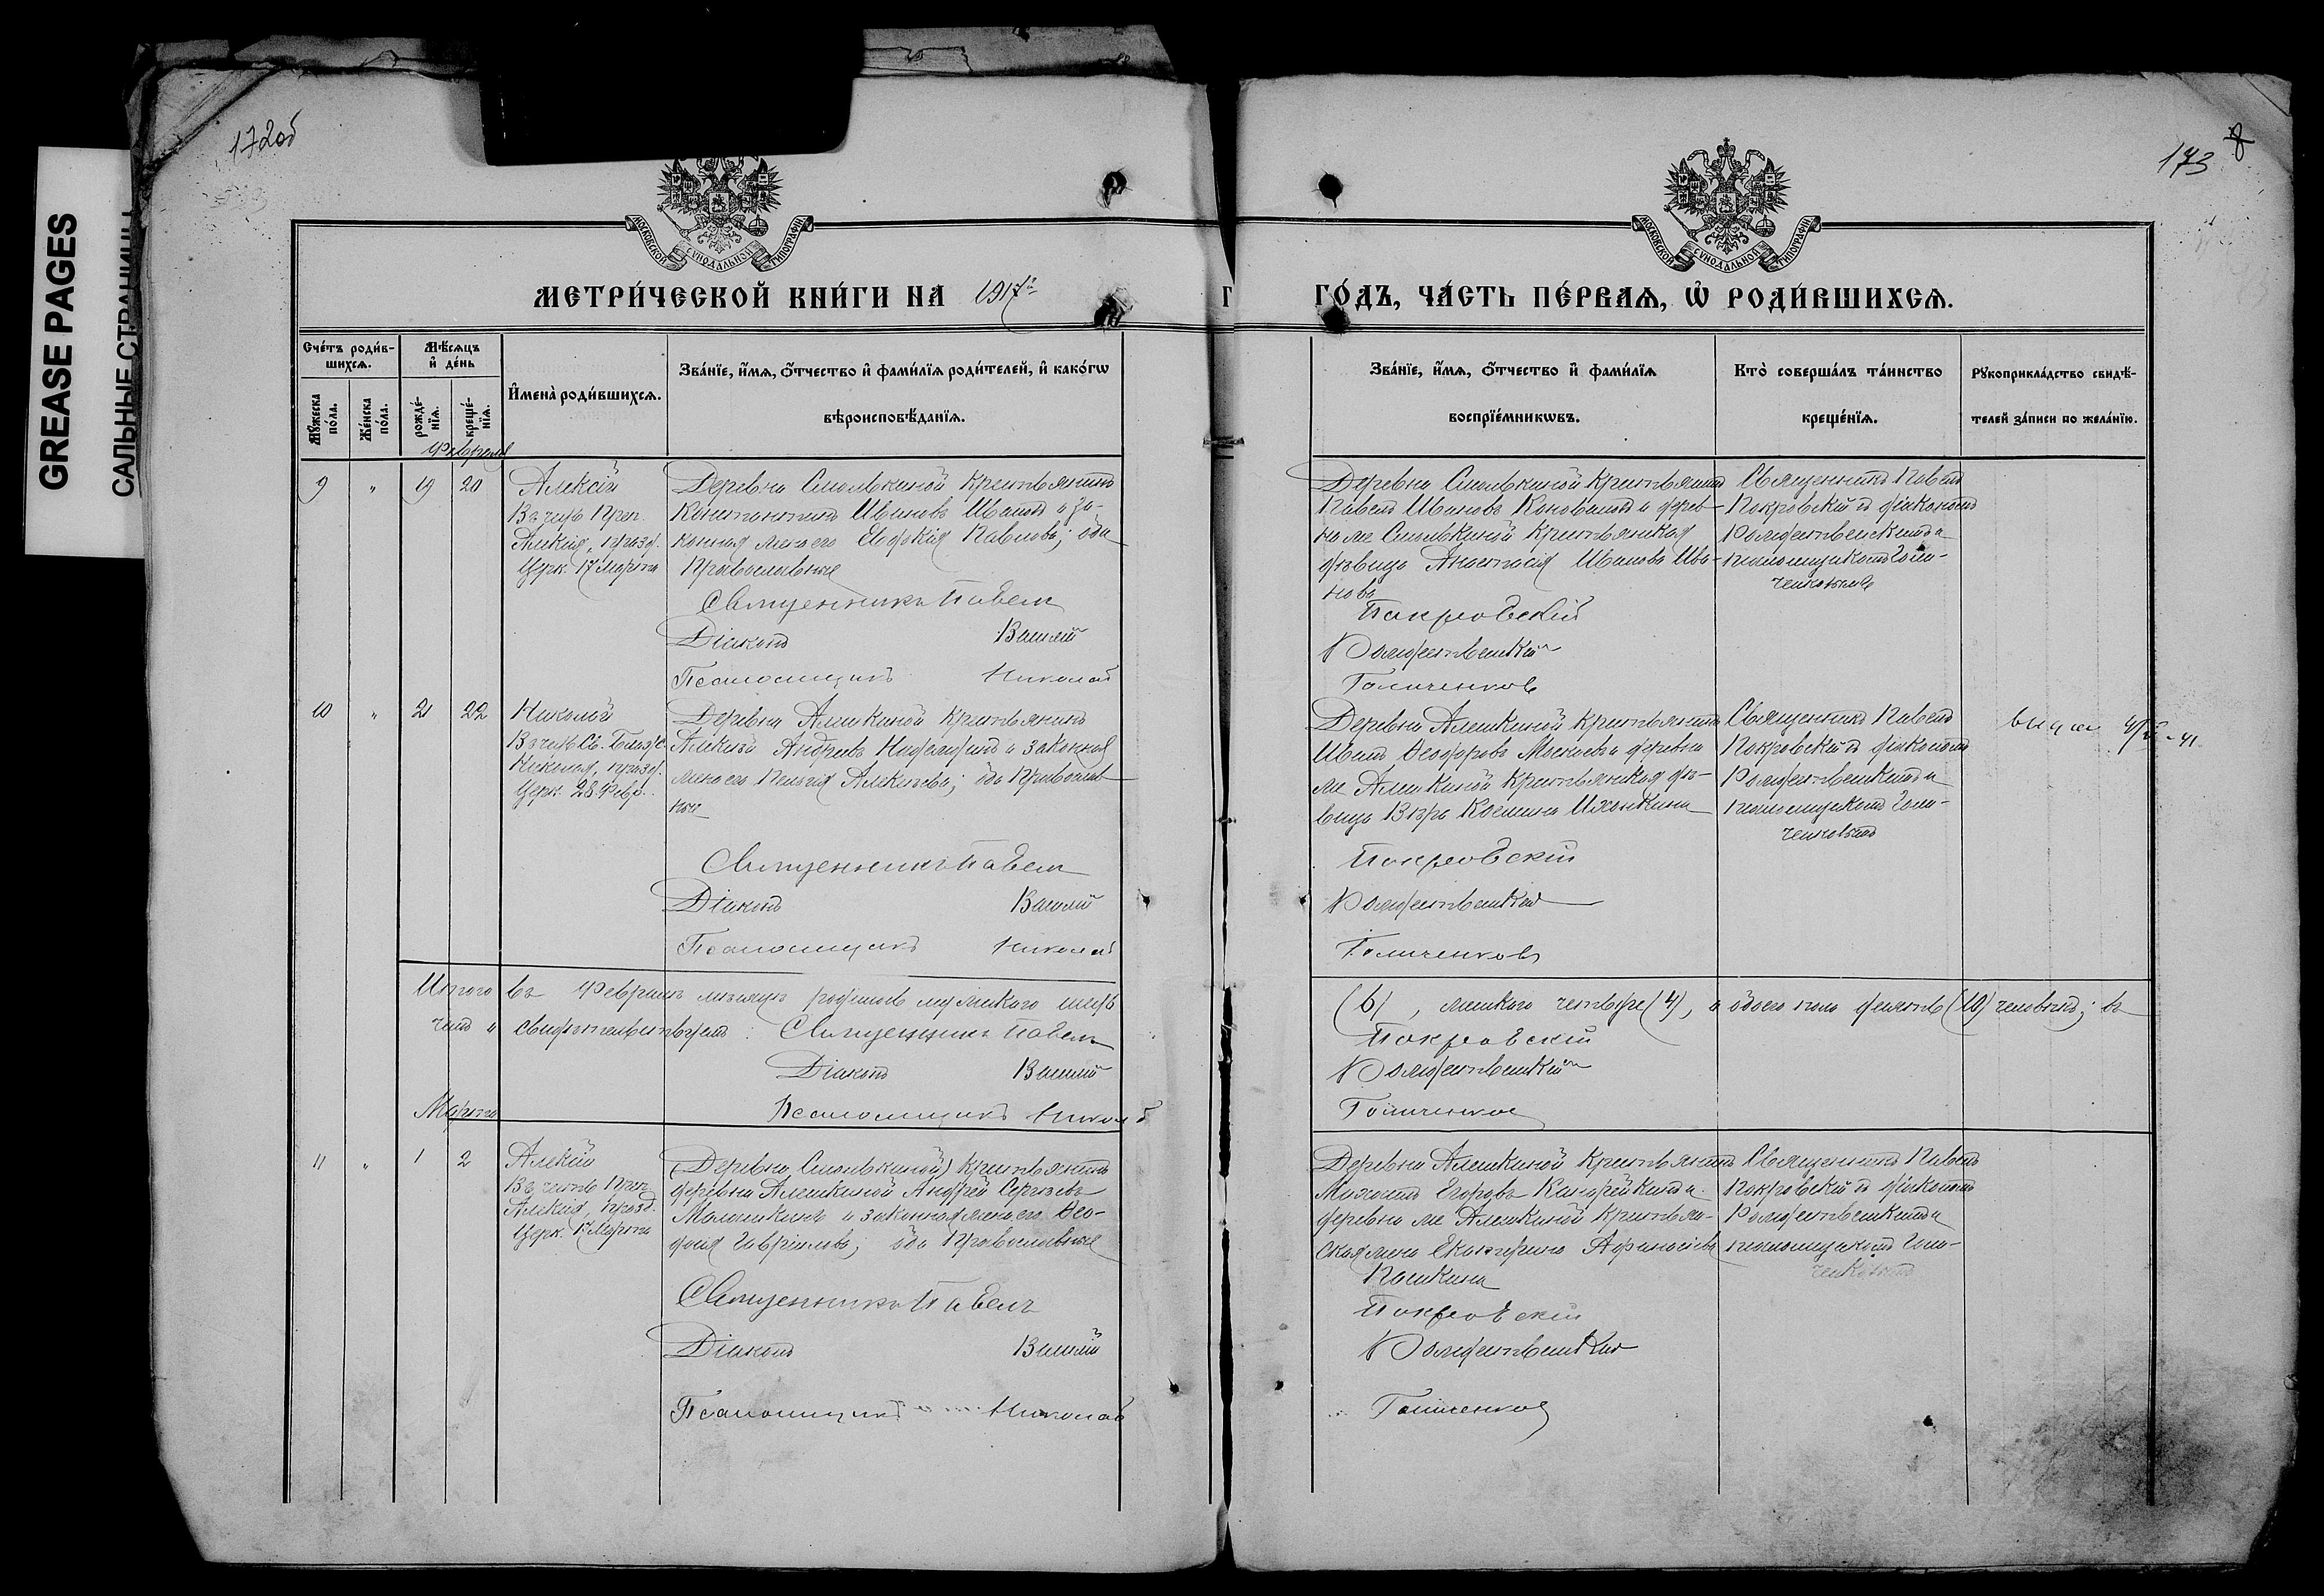 GREASE PAGES
САЛЬНЫЕ СТРАНИЦЫ
172об
173
8
МОСКОВСКОЙ СѴНОДАЛЬНОЙ ТИПОГРАФІИ
МОСКОВСКОЙ СѴНОДАЛЬНОЙ ТИПОГРАФІИ
МЕТРИ́ЧЕСКОЙ КНИ́ГИ НА 1917й
Г
ГО́ДЪ, ЧА́СТЬ ПЕ́РВАЯ, Ѿ РОДИ́ВШИХСЯ.
Сче́тъ роди́в-
шихся.
Мѣ́сяцъ
и҆ де́нь
Мꙋ́жеска
по́ла.
Же́нска
по́ла.
рожде́-
нїя.
креще́-
нїя.
И҆мена̀ роди́вшихся.
Зва́нїе, и҆́мя, ѻ҆́тчество и҆ фами́лїя роди́телей, и҆ како́гѡ
вѣроисповѣ́данїя.
Зва́нїе, и҆́мя, ѻ҆́тчество и҆ фами́лїя
воспрїе́мникѡвъ.
Кто̀ соверша́лъ та́инство
креще́нїя.
Рꙋкоприкла́дство свидѣ́-
телей за́писи по жела́нїю.
Февраля
9 " 19 20
Алексій
Въ честь Преп.
Алексія, празд.
Церк. 17 Марта
Деревни Смолькиной крестьянинъ
Константинъ Ивановъ и за-
конная жена его Евдокія Павлова; оба
Православные
Священникъ Павелъ
Діаконъ Василій
Псаломщикъ Николай
Деревни Смолькиной крестьянинъ
Павелъ Ивановъ Коноваловъ и дерев-
ни же Смолькиной крестьянская
дѣвица Анастасія Иванова Ива-
нова
Покровскій
Рождественскій
Голиченковъ
Священникъ Павелъ
Покровскій съ діакономъ
Рождественскимъ и
псаломщикомъ Голи-
ченковымъ
10 " 21 22
Николай
Въ честь Св. Блаж.
Николая, празд.
Церк. 28 Февр.
Деревни Алешкиной крестьянинъ
Алексій Андреевъ и законная
жена его Пелагія Алексѣева; оба Православ-
ные
Священникъ Павелъ
Діаконъ Василій
Псаломщикъ Николай
Деревни Алешкиной крестьянинъ
Иванъ Ѳеодоровъ и деревни
же Алешкиной крестьянская дѣ-
вица Вѣра Космина
Покровскій
Рождественскій
Голиченковъ
Священникъ Павелъ
Покровскій съ діакономъ
Рождественскимъ и
псаломщикомъ Голи-
ченковымъ
Итого въ Февралѣ мѣсяцѣ родилось мужескаго шесть
(6), женскаго четыре (4), а обоего пола десять (10) человѣкъ; въ
чемъ и свидѣтельствуемъ: Священникъ Павелъ
Покровскій
Діаконъ Василій
Рождественскій
Псаломщикъ Николай
Голиченковъ
Марта
11 " 1 2
Алексій
Въ честь Преп.
Алексія, празд.
Церк. 17 Марта
(Деревни Смолькиной) крестьянинъ
деревни Алешкиной Андрей Сергѣевъ
Малышкинъ и законная жена его Ѳео-
досія Гаврілова; оба Православные
Священникъ Павелъ
Діаконъ Василій
Псаломщикъ Николай
Деревни Алешкиной крестьянинъ
Егоровъ Канарейкинъ и
деревни же Алешкиной крестьян-
ская жена Екатерина Аѳанасіева
Пашкина
Покровскій
Рождественскій
Голиченковъ
Священникъ Павелъ
Покровскій съ діакономъ
Рождественскимъ и
псаломщикомъ Голи-
ченковымъ